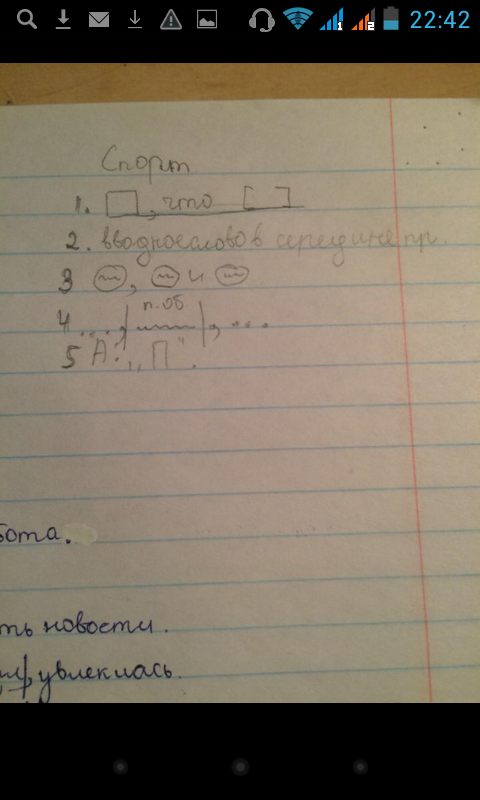 22:42
Спорт
1. □, что [ ]
2. вводное слово в середине пр.
3 , и
п. об
4 ...,|~~~|, ...
5 А: „П".
бота.
ть новости.
увлеклась.